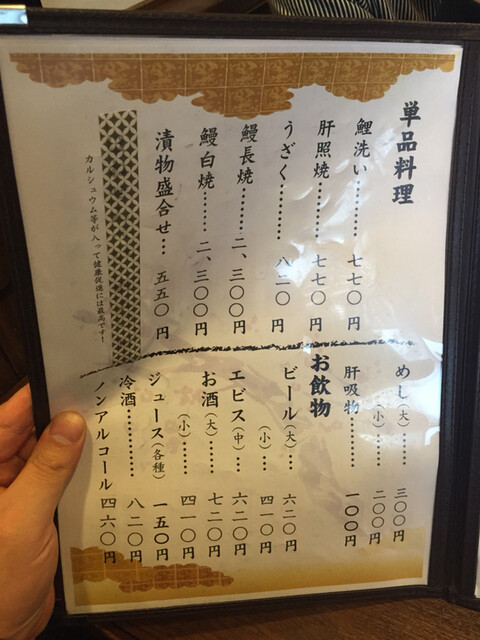 単品料理
鯉洗い………七七〇円
肝照焼………七七〇円
うざく………八二〇円
鰻長焼……二、三〇〇円
鰻白焼……二、三〇〇円
漬物盛合せ…五五〇円
カルシュウム等が入って健康促進には最高です!
めし(大)……三〇〇円
(小)……二〇〇円
肝吸物………一〇〇円
お飲物
ビール(大)…六二〇円
(小)…四一〇円
エビス(中)…六二〇円
お酒(大)…七二〇円
(小)…四一〇円
ジュース(各種)一五〇円
冷酒…………八二〇円
ノンアルコール四六〇円